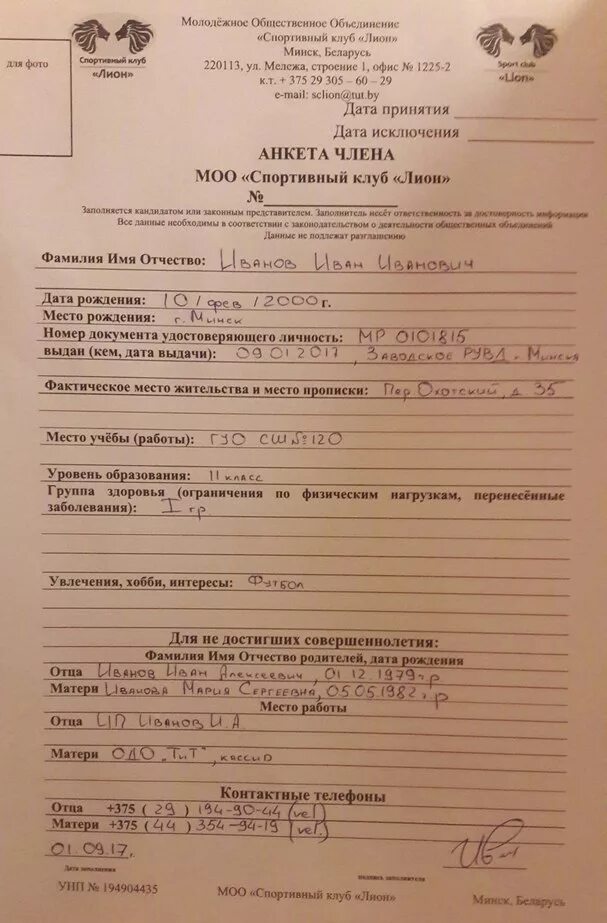 Молодёжное Общественное Объединение
«Спортивный клуб «Лион»
Минск, Беларусь
220113, ул. Мележа, строение 1, офис № 1225-2
к.т. + 375 29 305 – 60 – 29
e-mail: sclion@tut.by
для фото
Спортивный клуб
«Лион»
Sport club
«Lion»
Дата принятия
Дата исключения
АНКЕТА ЧЛЕНА
МОО «Спортивный клуб «Лион»
№
Заполняется кандидатом или законным представителем. Заполнитель несёт ответственность за достоверность информации
Все данные необходимы в соответствии с законодательством о деятельности общественных объединений
Данные не подлежат разглашению
Фамилия Имя Отчество: Иванов Иван Иванович
Дата рождения: 10 / фев / 2000 г.
Место рождения: г. Минск
Номер документа удостоверяющего личность: МР 0101815
выдан (кем, дата выдачи): 09.01.2017, Заводское РУВД г. Минска
Фактическое место жительства и место прописки: Пер. Охотский, д. 35
Место учёбы (работы): ГУО СШ №120
Уровень образования: 11 класс
Группа здоровья (ограничения по физическим нагрузкам, перенесённые
заболевания): I гр
Увлечения, хобби, интересы: Футбол
Для не достигших совершеннолетия:
Фамилия Имя Отчество родителей, дата рождения
Отца Иванов Иван Алексеевич, 01.12.1979 г.р
Матери Иванова Мария Сергеевна, 05.05.1982 г.р
Место работы
Отца ИП Иванов И.А
Матери ОДО "ТиТ", кассир
Контактные телефоны
Отца +375 ( 29 ) 194-90-44 (vel)
Матери +375 ( 44 ) 354-94-19 (vel.)
01.09.17.
Дата заполнения
подпись заполнителя
УНП № 194904435
МОО «Спортивный клуб «Лион»
Минск, Беларусь